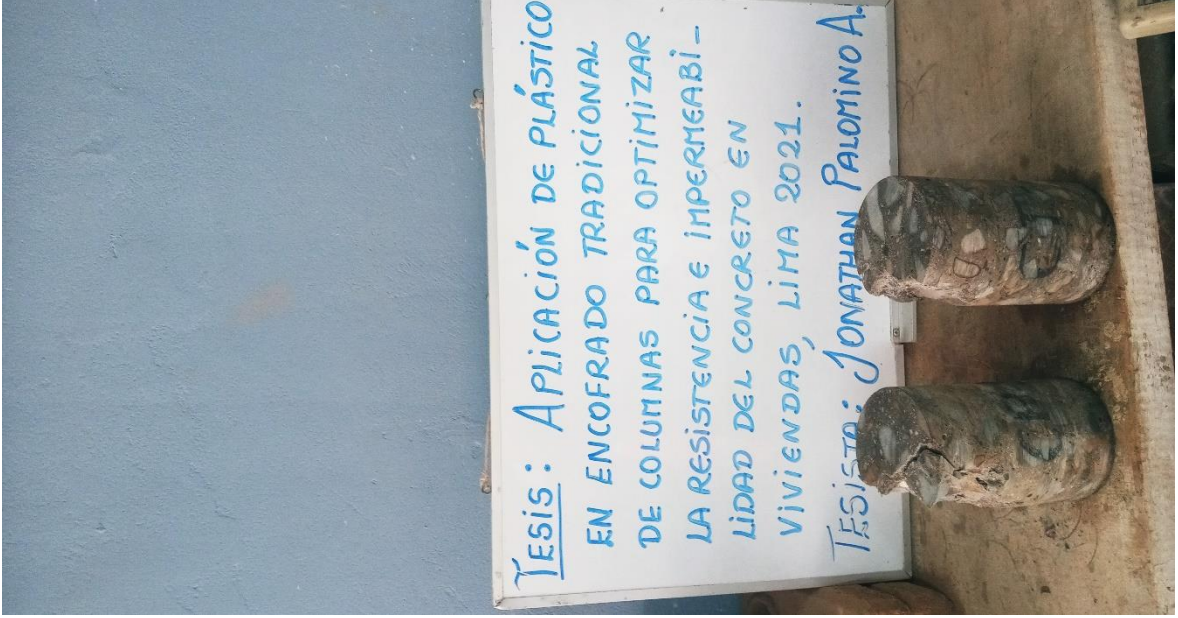 TESIS: APLICACIÓN DE PLÁSTICO
EN ENCOFRADO TRADICIONAL
DE COLUMNAS PARA OPTIMIZAR
LA RESISTENCIA E IMPERMEABI-
LIDAD DEL CONCRETO EN
VIVIENDAS, LIMA 2021.
TESISTA: JONATHAN PALOMINO A.